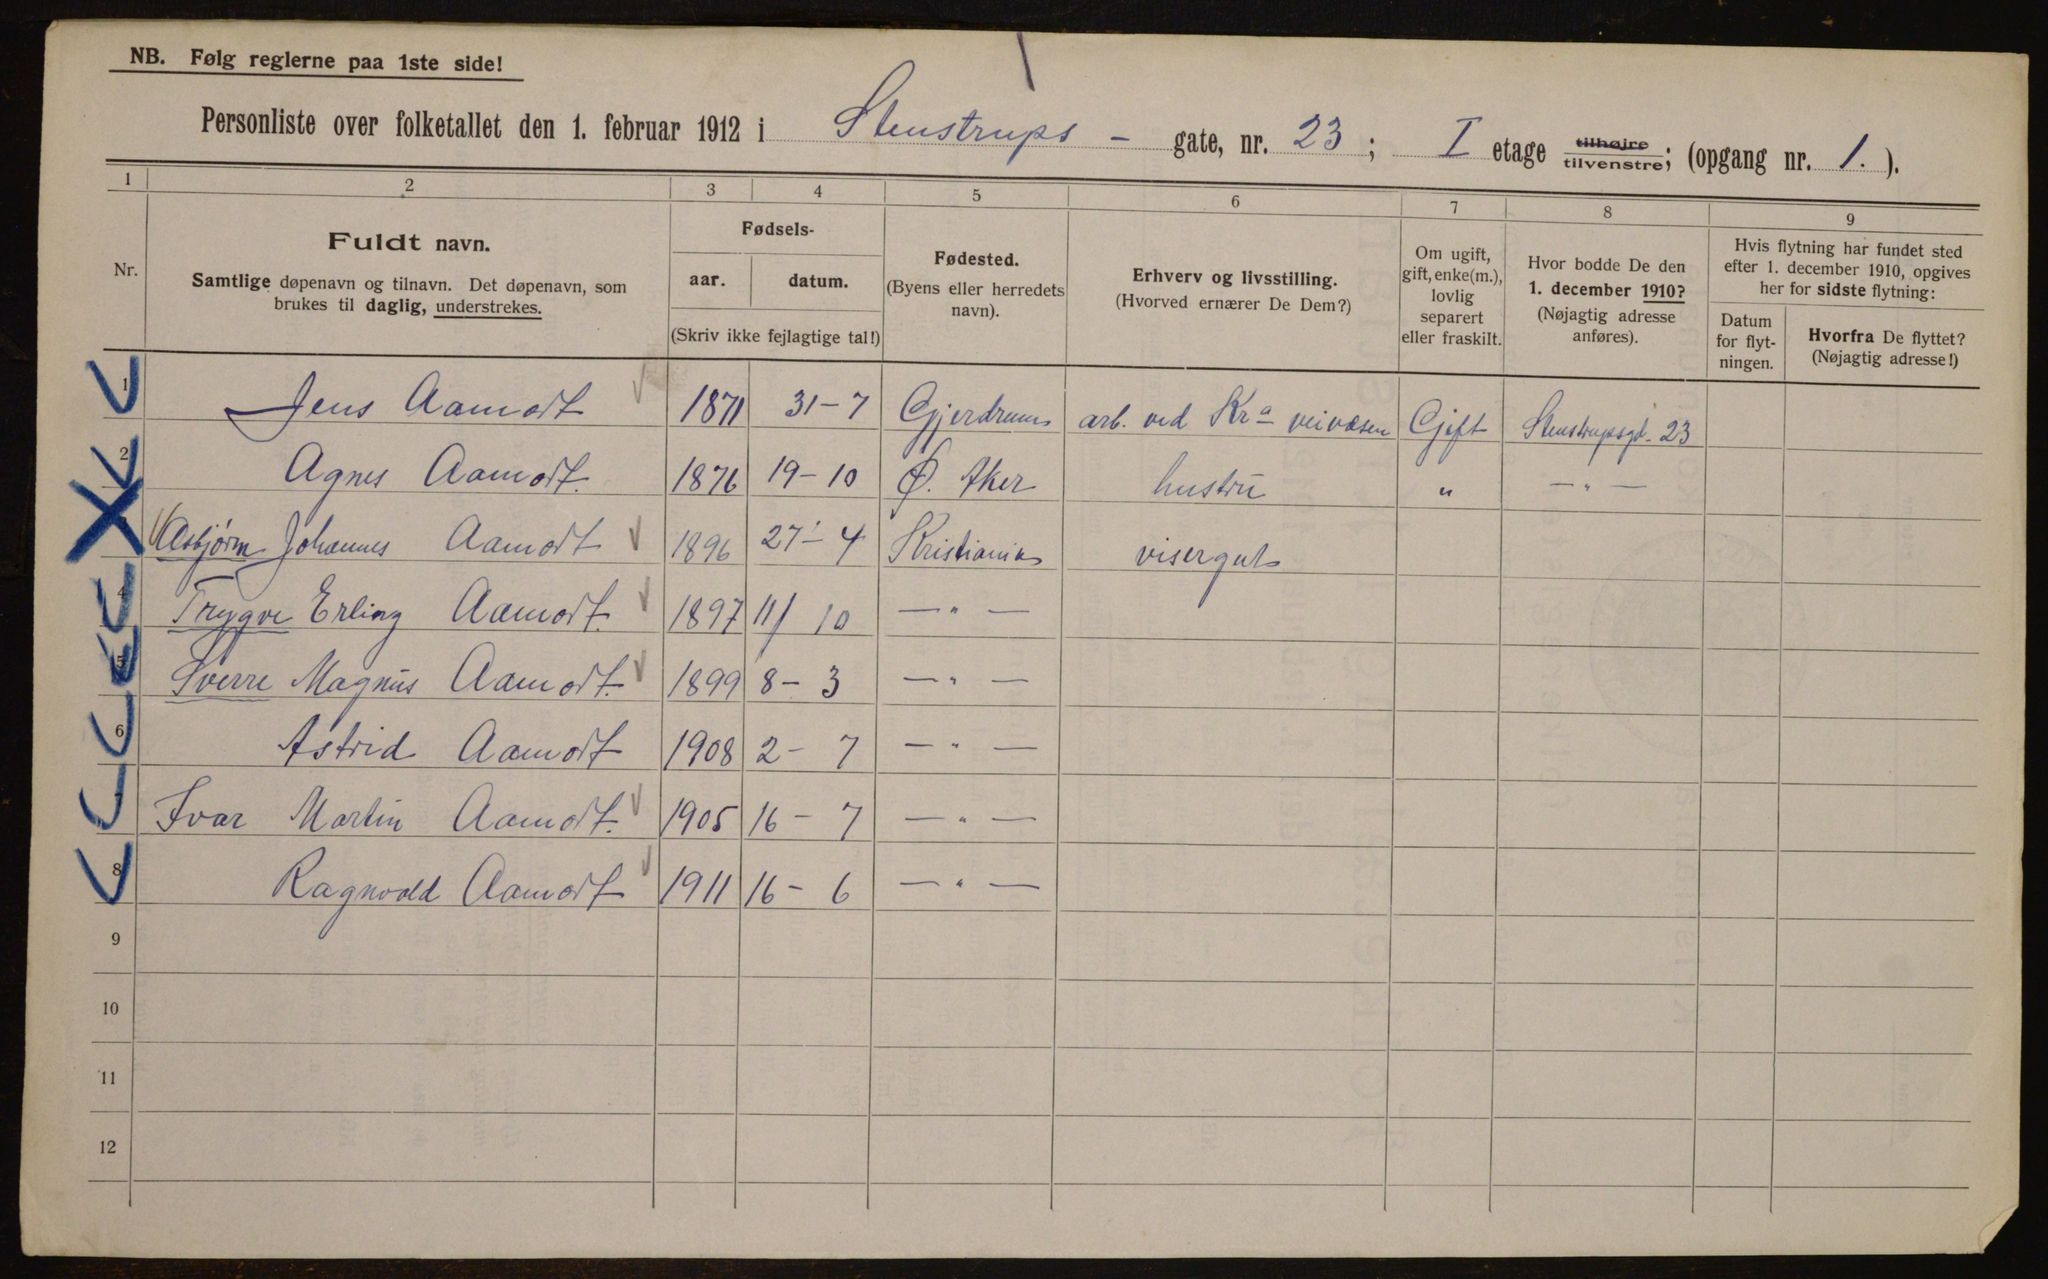 NB. Følg reglerne paa 1ste side!
Personliste over folketallet den 1. februar 1912 i Stenstrups - gate, nr. 23; I etage tilhøjre tilvenstre; (opgang nr. 1.).
1 2 3 4 5 6 7 8 9
Nr.
Fuldt navn.
Samtlige døpenavn og tilnavn. Det døpenavn, som
brukes til daglig, understrekes.
Fødsels-
aar. datum.
(Skriv ikke fejlagtige tal!)
Fødested.
(Byens eller herredets
navn).
Erhverv og livsstilling.
(Hvorved ernærer De Dem?)
Om ugift,
gift, enke(m.),
lovlig
separert
eller fraskilt.
Hvor bodde De den
1. december 1910?
(Nøjagtig adresse
anføres).
Hvis flytning har fundet sted
efter 1. december 1910, opgives
her for sidste flytning:
Datum
for flyt-
ningen.
Hvorfra De flyttet?
(Nøjagtig adresse!)
1 Jens Aamodt 1871 31-7 Gjerdrum arb. ved Kra veivæsen Gift Stenstrupsgd. 23
2 Agnes Aamodt. 1876 19-10 Ø. Aker hustru " -"-
Asbjørn Johannes Aamodt 1896 27-4 Kristiania visergut
4 Trygve Erling Aamodt. 1897 11/10 -"-
5 Sverre Magnus Aamodt. 1899 8-3 -"-
6 Astrid Aamodt 1908 2-7 -"-
7 Ivar Martin Aamodt. 1905 16-7 -"-
8 Ragnvald Aamodt 1911 16-6 -"-
9
10
11
12